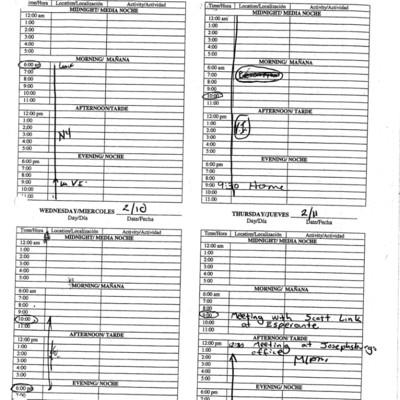 Time/Hora Location/Localización Activity/Actividad
MIDNIGHT/ MEDIA NOCHE
12:00 am
1:00
2:00
3:00
4:00
5:00
MORNING/ MAÑANA
6:00 am
7:00
8:00
9:00
10:00
11:00
AFTERNOON/TARDE
12:00 pm
1:00
2:00
3:00 NY
4:00
5:00
EVENING/ NOCHE
6:00 pm
7:00
8:00
9:00
10:00
11:00
WEDNESDAY/MIERCOLES 2/10
Day/Día Date/Fecha
Time/Hora Location/Localización Activity/Actividad
MIDNIGHT/ MEDIA NOCHE
12:00 am
1:00
2:00
3:00
4:00
5:00
MORNING/ MAÑANA
6:00 am
7:00
8:00
9:00
10:00
11:00
AFTERNOON/TARDE
12:00 pm
1:00
2:00
3:00
4:00
5:00
EVENING/ NOCHE
6:00 pm
7:00
8:00
9:00 9:30 Home
10:00
11:00
THURSDAY/JUEVES 2/11
Day/Día Date/Fecha
Time/Hora Location/Localización Activity/Actividad
MIDNIGHT/ MEDIA NOCHE
12:00 am
1:00
2:00
3:00
4:00
5:00
MORNING/ MAÑANA
6:00 am
7:00
8:00
9:00
10:00
11:00
AFTERNOON/TARDE
12:00 pm
1:00
2:00
3:00
4:00
5:00
EVENING/ NOCHE
6:00 pm
7:00
Time/Hora Location/Localización Activity/Actividad
MIDNIGHT/ MEDIA NOCHE
12:00 am
1:00
2:00
3:00
4:00
5:00
MORNING/ MAÑANA
6:00 am
7:00
8:00
9:00 Meeting with Scott Link
10:00 at Esperante
11:00
AFTERNOON/TARDE
12:00 pm 12:30 Meeting at Josephsberg's
1:00 office
2:00
3:00
4:00
5:00
EVENING/ NOCHE
6:00 pm
7:00